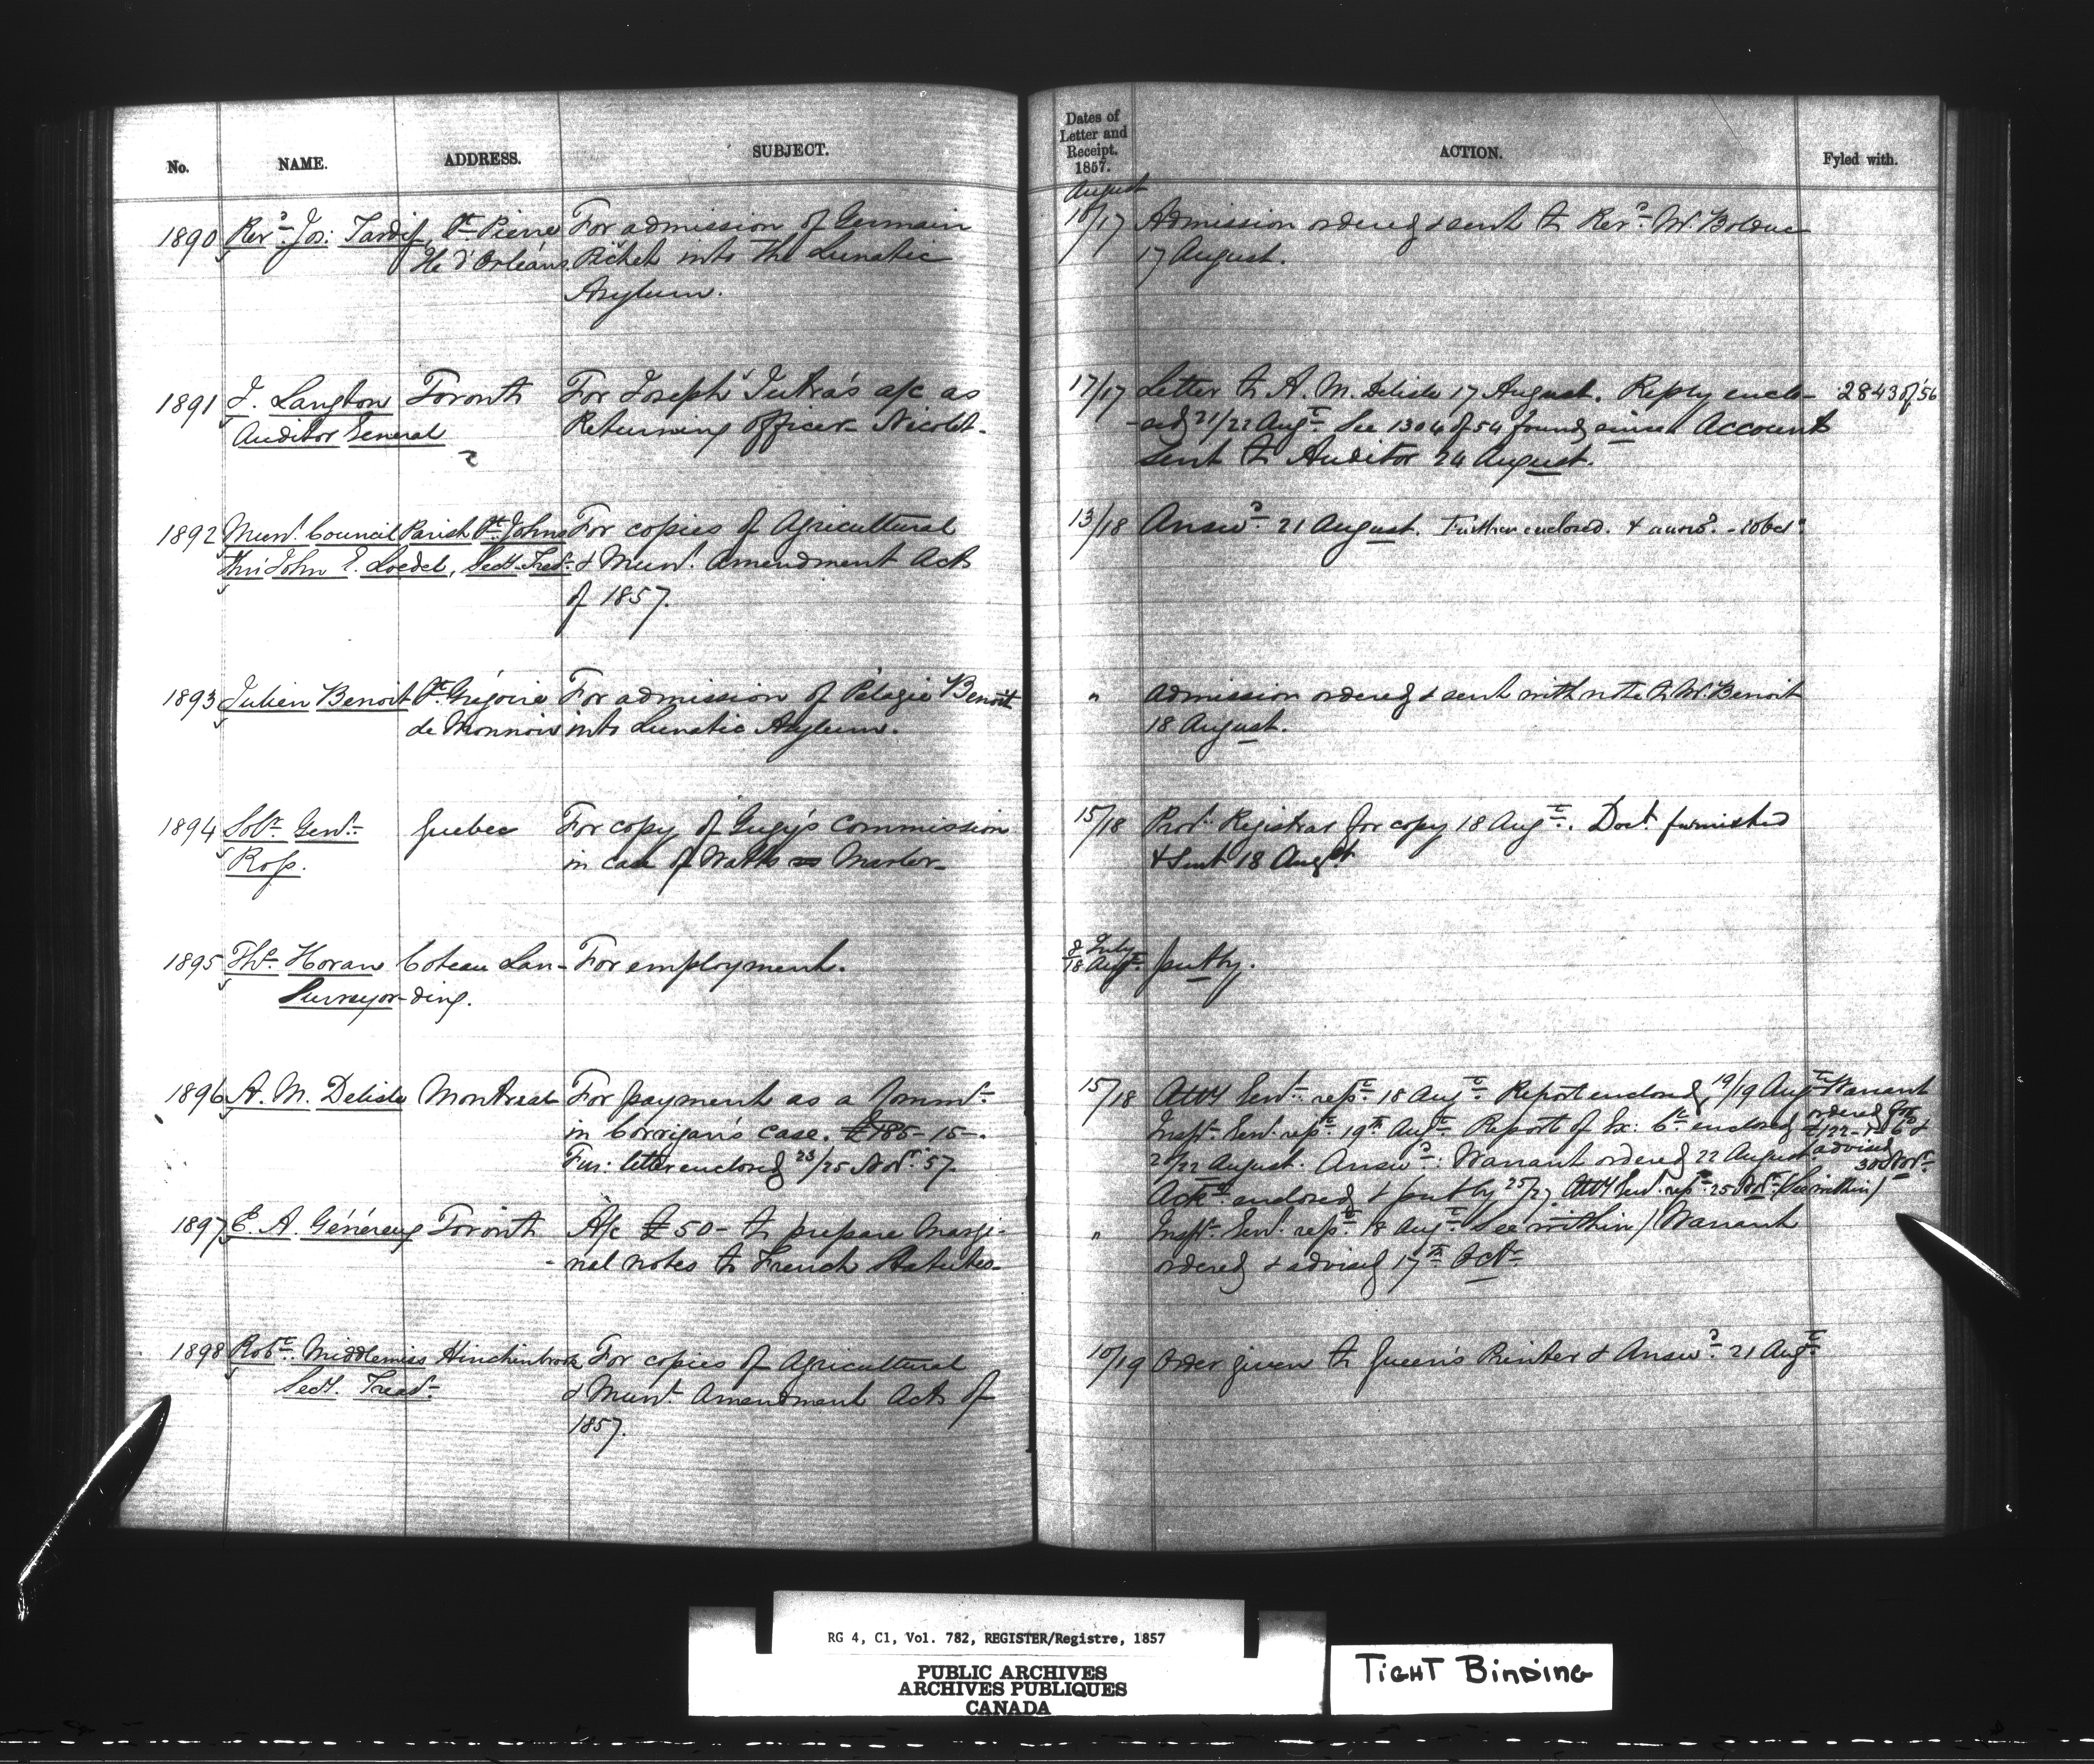 No. NAME. ADDRESS. SUBJECT.
1890 Revd. Jos: Tardif, St. Pierre For admission of Germain
Ile d'Orléans. Pichet into the Lunatic
Asylum.
1891 J. Langton Toronto For Joseph Jutra's a/c as
Auditor General Returning Officer Nicolet.
1892 Munl. Council Parish St. Johns For copies of Agricultural
thro' John E. Loedel, Secy. Trer. & Munl. Amendment Acts
of 1857.
1893 Julien Benoit St. Grégoire For admission of Pélagie Benoit
de Monnoir into Lunatic Asylum.
1894 Solr. Genl. Quebec For copy of Gugy's Commission
Ross. in case of Watts vs Marler.
1895 Ths. Horan Coteau Lan- For employment.
Surveyor -ding.
1896 A. M. Delisle Montreal For payment as a Commr.
in Corrigan's case. £185-15-.
Fur: letter enclosed 23/25 Novr. 57.
1897 E. A. Généreux Toronto A/c £50- to prepare Margi-
-nal notes to French Statutes.
1898 Robt. Middlemiss Hinchinbrook For copies of Agricultural
Secy. Treasr. & Munl. Amendment Acts of
1857.
Dates of
Letter and
Receipt.
1857. ACTION. Fyled with.
August
16/17 Admission ordered & sent to Revd. Mr. Bolduc
17 August.
17/17 Letter to A. M. Delisle 17 August. Reply enclo- 2843 of '56
-sed 21/22 Augt. See 1304 of 54 found, since Account
sent to Auditor 24 August.
13/18 Answd. 21 August. Further enclosed. & answd.
" Admission ordered & sent with note to Mr. Benoit
18 August.
15/18 Provl. Registrar for copy 18 Augt. Doct. furnished
& sent 18 Augst.
8 July
18 Augt. put by.
15/18 Atty Genl. rept. 18 Augt. Report enclosed, 19/19 Augt. Warrant
ordered for
Inspr. Genl. rept. 19th Augt. Report of Ex: Ct. enclosed
21/22 August. Answd.: Warrant ordered 22 August. advised
30 Novr.
Ackt. enclosed & put by 25/27. Atty Genl. rept. 25 Novr. (See within)
" Inspr. Genl. rept. 18 Augt. (See within) Warrant
ordered & advised 17th Oct.
10/19 Order given to Queen's Printer & Answd. 21 Augt.
RG 4, C1, Vol. 782, REGISTER/Registre, 1857
PUBLIC ARCHIVES
ARCHIVES PUBLIQUES
CANADA
TIGHT BINDING